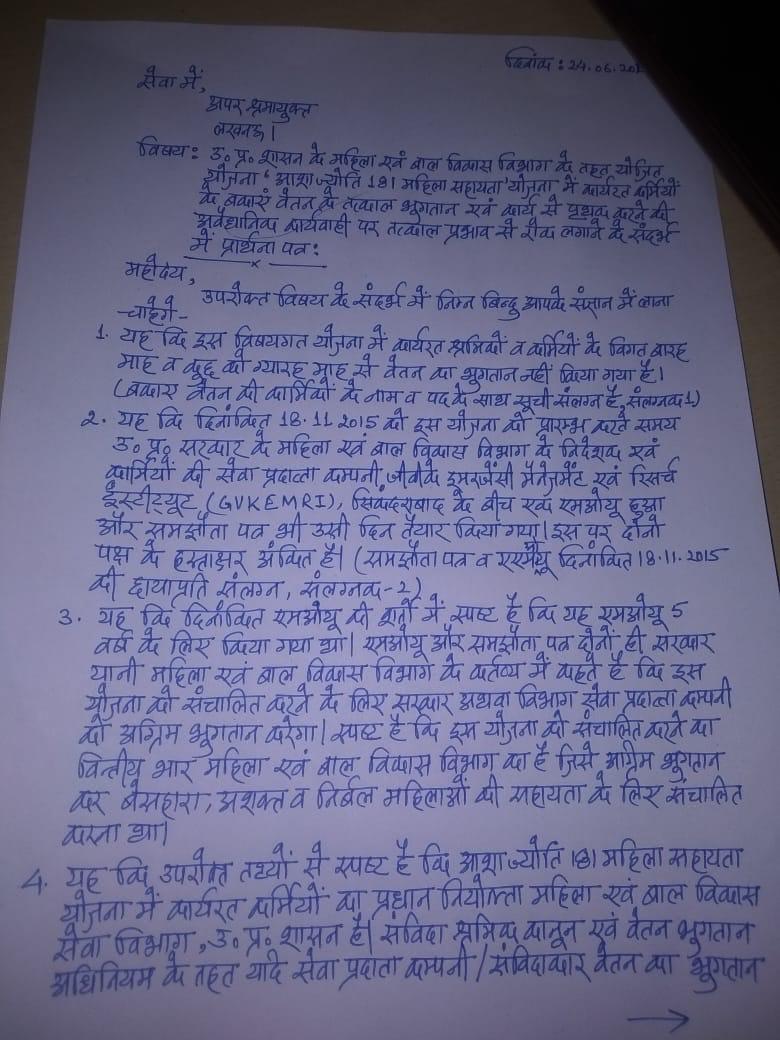 दिनांक : 24.06.20
सेवा में,
अपर श्रमायुक्त
लखनऊ।
विषय : उ. प्र. शासन के महिला एवं बाल विकास विभाग के तहत योजित
योजना 'आशा ज्योति 181 महिला सहायता योजना में कार्यरत कर्मियों
के बकाए वेतन के तत्काल भुगतान एवं कार्य से पृथक करने की
अवैधानिक कार्यवाही पर तत्काल प्रभाव से रोक लगाने के संदर्भ
में प्रार्थना पत्र :
महोदय,
उपरोक्त विषय के संदर्भ में निम्न बिन्दु आपके संज्ञान में लाना
चाहेंगे -
1. यह कि इस विषयगत योजना में कार्यरत श्रमिकों व कर्मियों के विगत बारह
माह व कुछ को ग्यारह माह से वेतन का भुगतान नहीं किया गया है।
(बकाए वेतन की कार्मिकों के नाम व पद के साथ सूची संलग्न है, संलग्नक 1)
2. यह कि दिनांकित 18.11.2015 को इस योजना को प्रारम्भ करते समय
उ. प्र. सरकार के महिला एवं बाल विकास विभाग के निदेशक एवं
कार्मियों की सेवा प्रदात्ता कम्पनी जीवीके इमरजेंसी मैनेजमेंट एवं रिसर्च
इंस्टीट्यूट (GVKEMRI), सिकंदराबाद के बीच एक एमओयू हुआ
और समझौता पत्र भी उसी दिन तैयार किया गया। इस पर दोनों
पक्ष के हस्ताक्षर अंकित है। (समझौता पत्र व एमओयू दिनांकित 18.11.2015
की छायाप्रति संलग्न, संलग्नक - 2)
3. यह कि दिनांकित एमओयू की शर्तों में स्पष्ट है कि यह एमओयू 5
वर्ष के लिए किया गया था। एमओयू और समझौता पत्र दोनों ही सरकार
यानी महिला एवं बाल विकास विभाग के कर्तव्य में कहते है कि इस
योजना को संचालित करने के लिए सरकार अथवा विभाग सेवा प्रदात्ता कम्पनी
को अग्रिम भुगतान करेगा। स्पष्ट है कि इस योजना को संचालित करने का
वित्तीय भार महिला एवं बाल विकास विभाग का है जिसे अग्रिम भुगतान
कर बेसहारा, अशक्त व निर्बल महिलाओं की सहायता के लिए संचालित
करना था।
4. यह कि उपरोक्त तथ्यों से स्पष्ट है कि आशा ज्योति 181 महिला सहायता
योजना में कार्यरत कर्मियों का प्रधान नियोक्ता महिला एवं बाल विकास
सेवा विभाग, उ. प्र. शासन है। संविदा श्रमिक कानून एवं वेतन भुगतान
अधिनियम के तहत यदि सेवा प्रदाता कम्पनी / संविदाकार वेतन का भुगतान